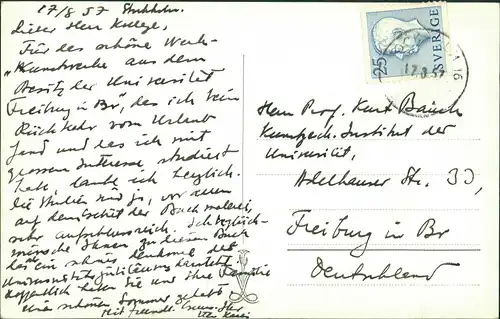 17/8 57 Stockholm.
Lieber Herr Kollege,
Für das schöne Werk
"Kunstwerke aus dem
Besitz der Universität
Freiburg in Br", das ich bein
Rückkehr vom Urlaub
fand und das ich mit
grossem Interesse studiert
habe, danke ich herzlich.
Die Studien sind ja, vor allem
auf dem Gebiet der Buchmalerei,
sehr aufschlussreich. Ich beglück-
wünsche Ihnen zu diesem Buch
das ein schönes Denkmal des
Universitätsjubiläums bedeutet.
Hoffentlich haben Sie und Ihre Familie
einen schönen Sommer gehabt
Mit freundl.
25
SVERIGE
17.8.57
Herrn Prof. Kurt Bauch
Kunstgesch. Institut der
Universität,
Adelhauser Str. 33,
Freiburg in Br
Deutschland